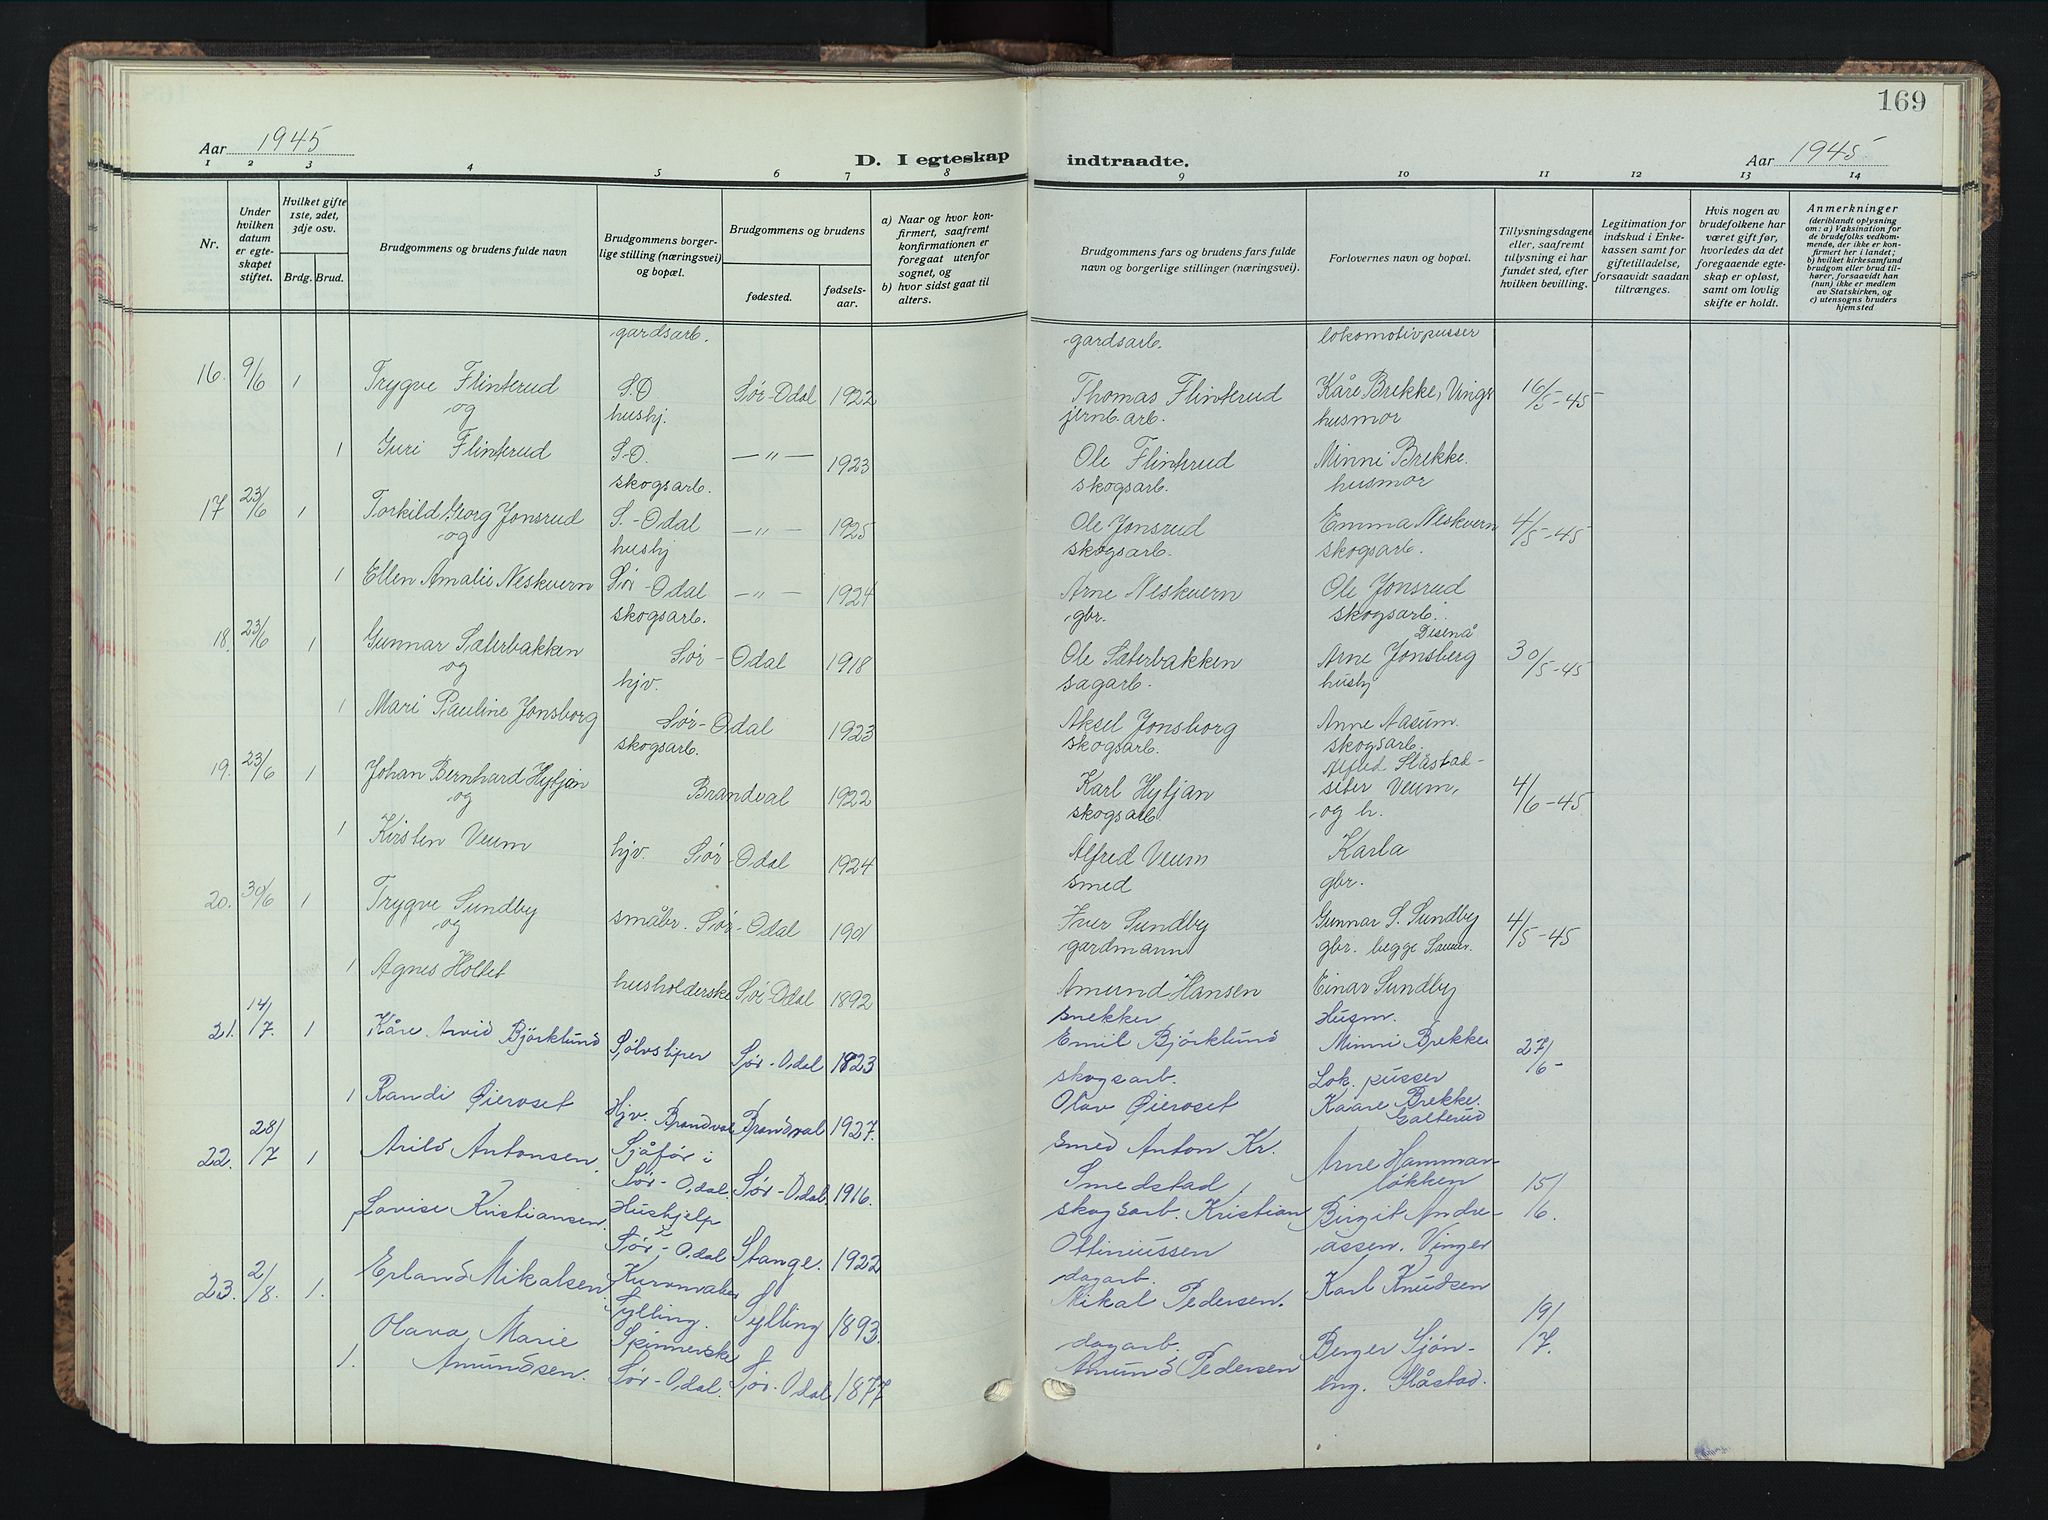 169
Aar 1945
D. I egteskap indtraadte.
Aar 1945
1 2 3 4 5 6 7 8 9 10 11 12 13 14
Nr.
Under hvilken datum er egteskapet stiftet.
Hvilket gifte 1ste, 2det, 3dje osv.
Brdg. Brud.
Brudgommens og brudens fulde navn
Brudgommens borgerlige stilling (næringsvei) og bopæl.
Brudgommens og brudens
fødested.
fødselsaar.
a) Naar og hvor konfirmert, saafremt konfirmationen er foregaaet utenfor sognet, og
b) hvor sidst gaat til alters.
Brudgommens fars og brudens fars fulde navn og borgerlige stillinger (næringsvei).
Forlovernes navn og bopæl.
Tillysningsdagene eller, saafremt tillysning ei har fundet sted, efter hvilken bevilling.
Legitimation for indskud i Enkekassen samt for giftetilladelse, forsaavidt saadan tiltrænges.
Hvis nogen av brudefolkene har været gift før, hvorledes da det foregaaende egteskap er opløst, samt om lovlig skifte er holdt.
Anmerkninger
(deriblandt oplysning om: a) Vaksination for de brudefolks vedkommende, der ikke er konfirmert her i landet;
b) hvilket kirkesamfund brudgom eller brud tilhører, forsaavidt han (hun) ikke er medlem av Statskirken, og
c) utensogns bruders hjemsted
gardsarb. gardsarb. lokomotivpusser
16. 9/6 1 Trygve Flinterud S.O. Sør-Odal 1922 Thomas Flinterud Kåre Brekke, Vinger 16/5-45
og hushj. jernb.arb. husmor
1 Guri Flinterud S.O. —"— 1923 Ole Flinterud Minni Brekke.
skogsarb. skogsarb. husmor
17 23/6 1 Torkild Georg Jonsrud S.-Odal —"— 1925 Ole Jonsrud Emma Neskvern 4/5-45
og hushj skogsarb. skogsarb.
1 Ellen Amalie Neskvern Sør-Odal —"— 1924 Arne Neskvern Ole Jonsrud
skogsarb. gbr. skogsarb.
Disenå
18. 23/6 1 Gunnar Sæterbakken Sør-Odal 1918 Ole Sæterbakken Arne Jonsberg 30/5-45
og hjv. sagarb. hushj
1 Mari Pauline Jonsborg Sør-Odal 1923 Aksel Jonsborg Anne Aasum.
skogsarb. skogsarb. skogsarb.
Alfred Slåstad-
19. 23/6 1 Johan Bernhard Hytjan Brandval 1922 Karl Hytjan seter Veum, 4/6-45
og skogsarb. og h.
1 Kirsten Veum hjv. Sør-Odal 1924 Alfred Veum Karla
smed gbr.
20. 30/6 1 Trygve Sundby småbr. Sør-Odal 1901 Iver Sundby Gunnar S. Sundby 4/5-45
og gardmann gbr. begge Sander.
1 Agnes Holtet husholderske Sør-Odal 1892 Amund Hansen Einar Sundby
snekker Husm.
21. 14/7. 1 Kåre Arvid Björklund Sølvsliper Sør-Odal 1823 Emil Björklund Minni Brekke 27/6-
skogsarb. Lok. pusser
1 Randi Øieroset Hjv. Brandval Brandval 1927. Olav Øieroset Kaare Brekke. Galterud
22. 28/7 1 Arild Antonsen. Sjåfør i Smed Anton Kr. Arne Hammar-
Sør-Odal Sør-Odal 1916. Smedstad, løkken 15/
Lovise Kristiansen. Hushjelp skogsarb. Kristian Birgit Andre- 16.
Sør-Odal Stange. 1922 Ottiniussen assen. Vinger
23. 2/8. 1. Erland Mikalsen. Kurvmaker dagarb. Karl Knudsen
Sylling. Sylling 1893. Mikal Pedersen. 19/
Olava Marie Spinnerske dagarb. Berger Sjön- 7.
1. Amundsen. Sør-Odal. Sør-Odal 1877 Amund Pedersen eng. Slåstad.